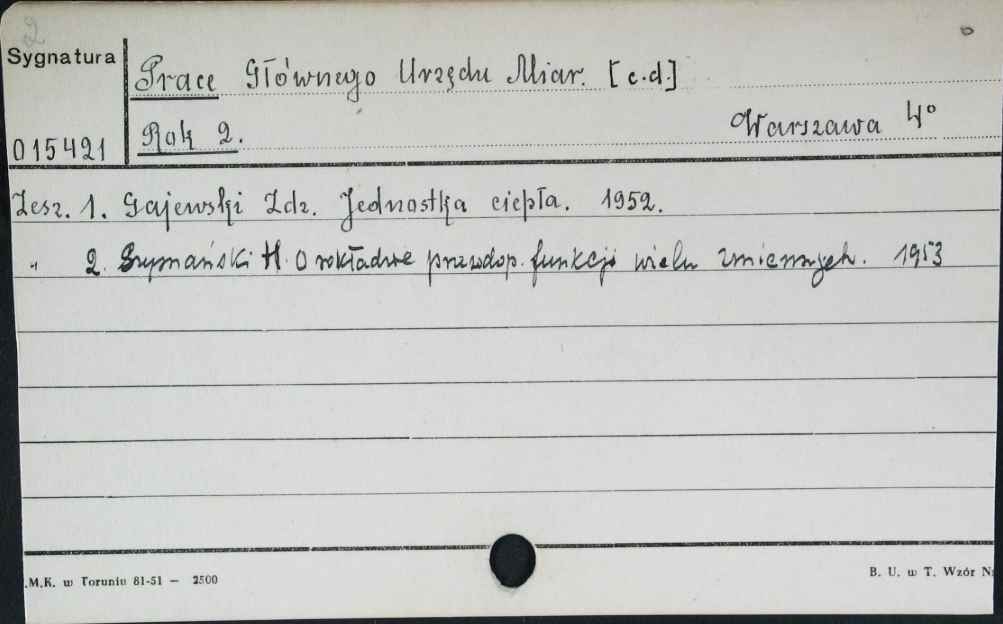 2
Sygnatura
Prace Głównego Urzędu Miar. [c.d.]
015421
Rok 2.
Warszawa 4°
Zesz. 1. Gajewski Zdz. Jednostka ciepła. 1952.
" 2. Szymański H. O rozkładzie prawdop. funkcji wielu zmiennych. 1953
.M.K. w Toruniu 81-51 — 2500
B. U. w T. Wzór N